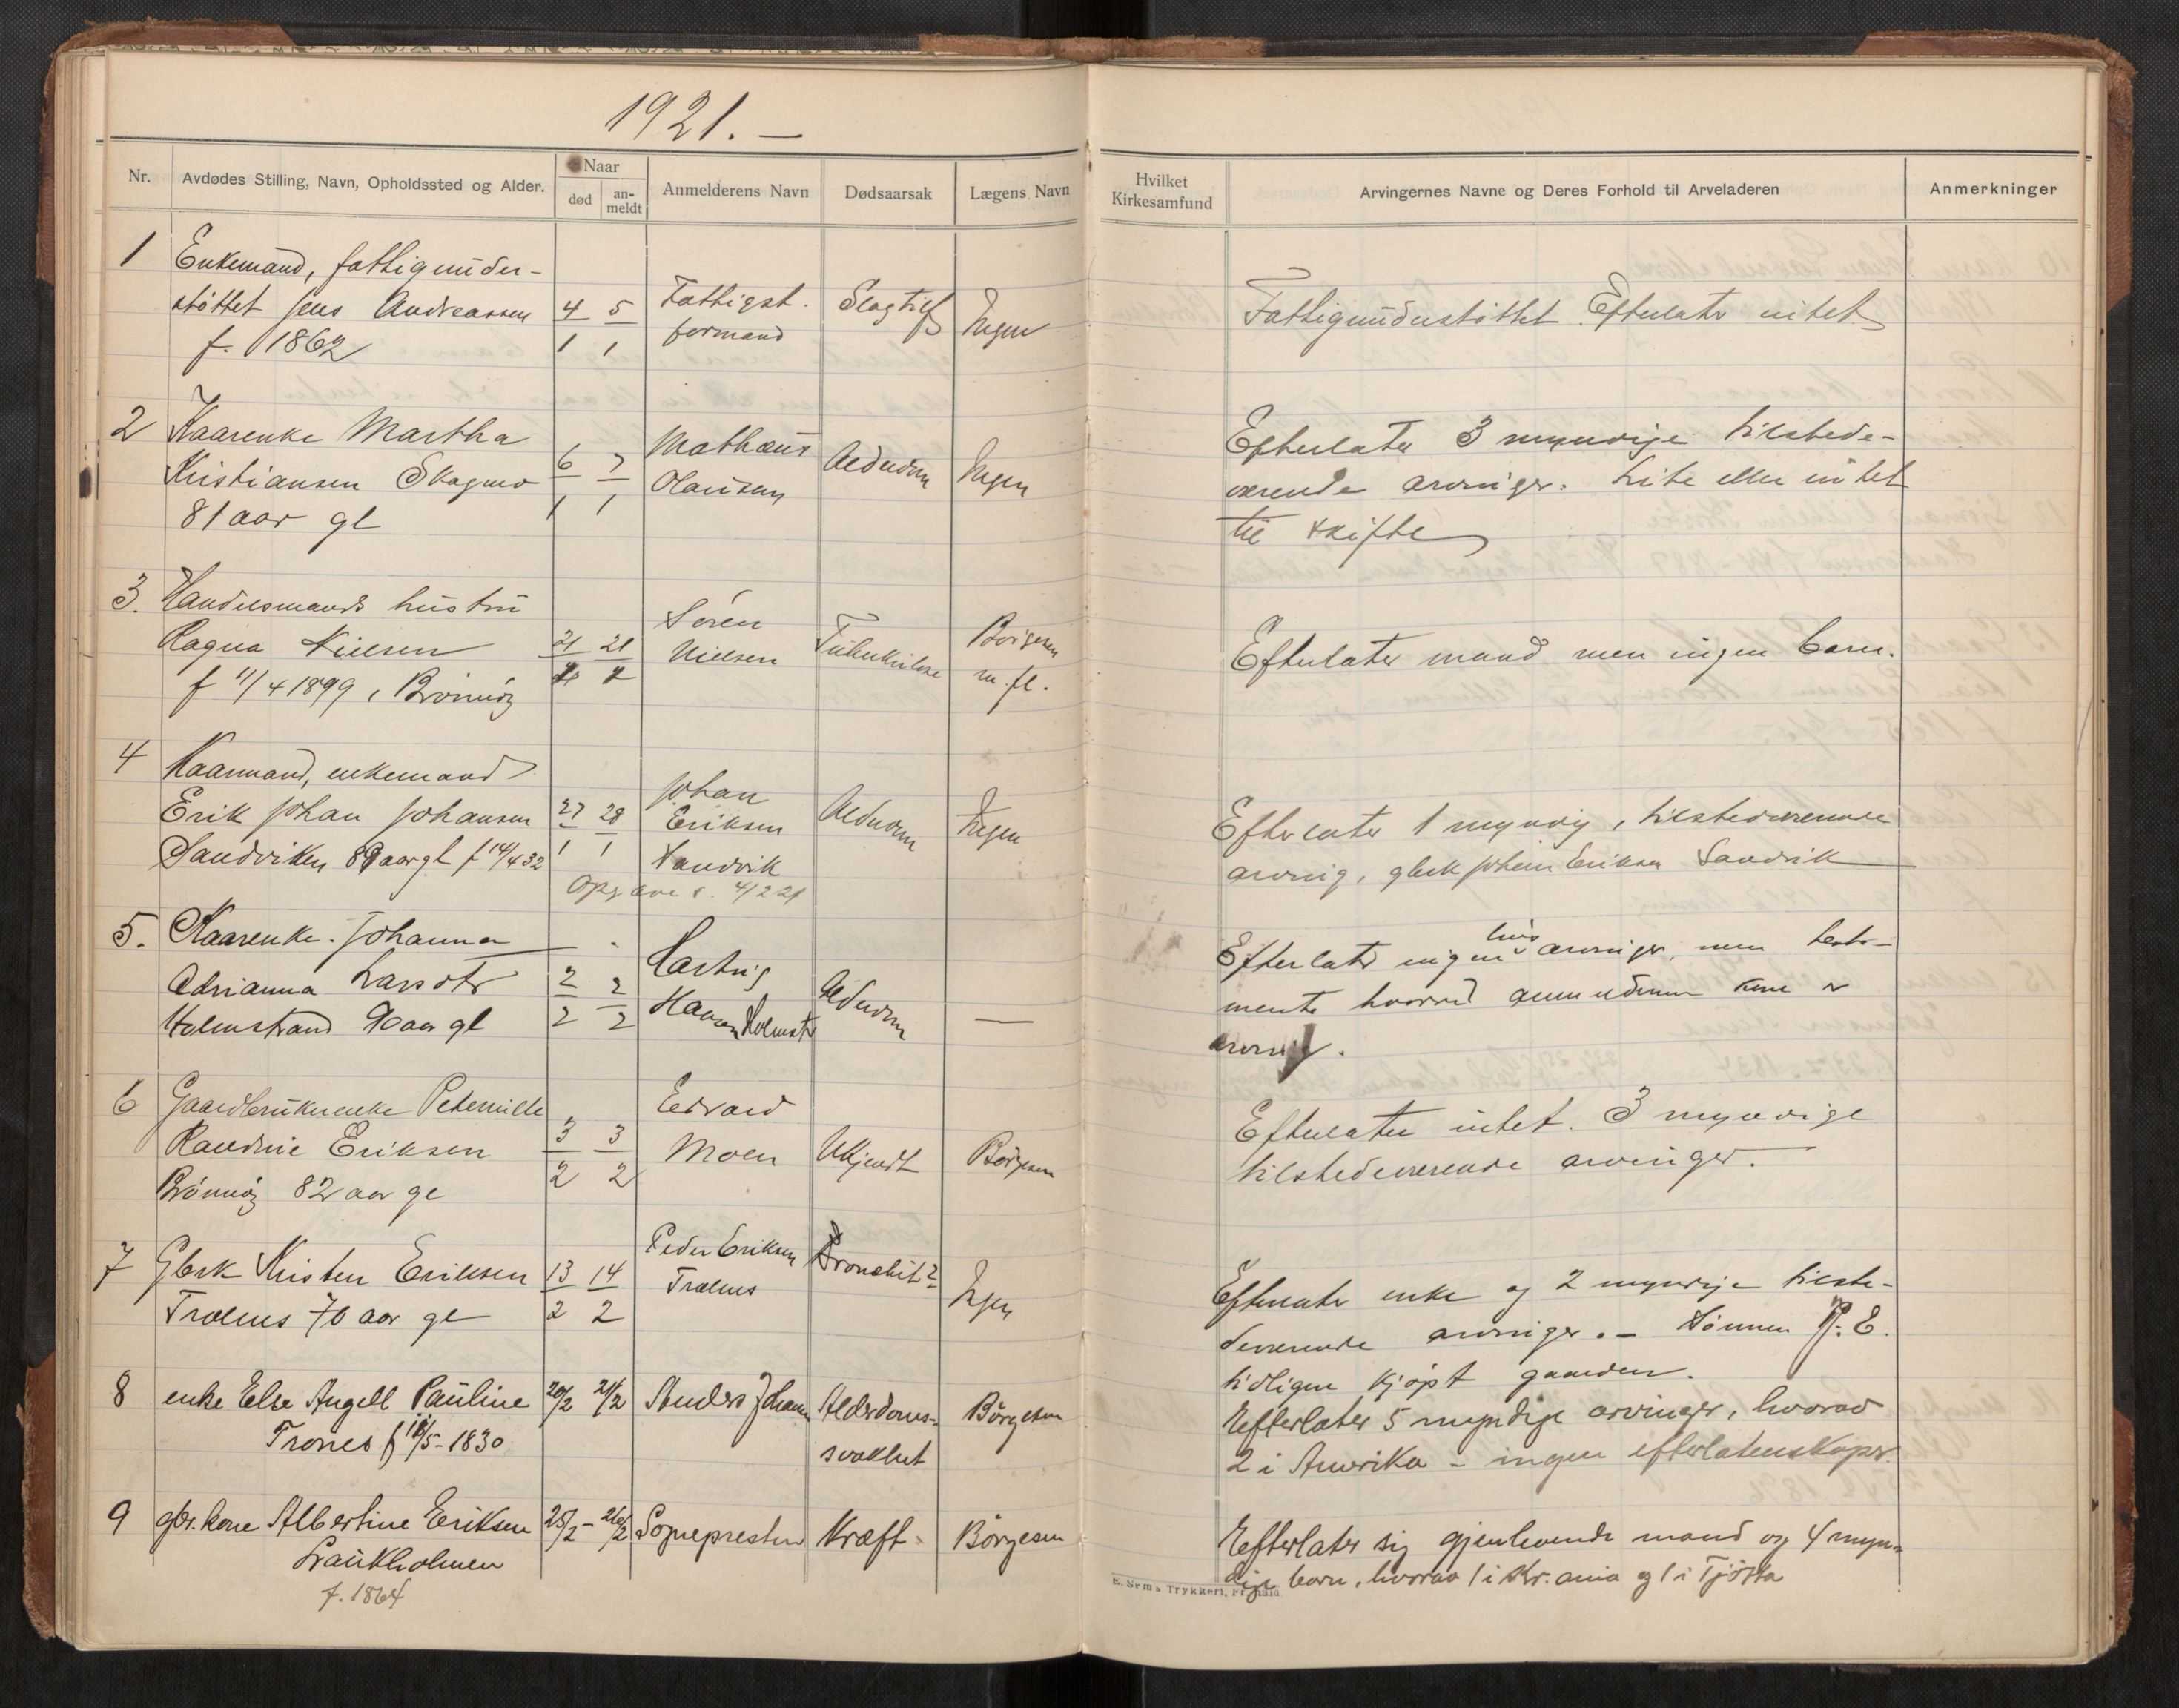 1921. —
Nr.
Avdødes Stilling, Navn, Opholdssted og Alder.
Naar
død
an-
meldt
Anmelderens Navn
Dødsaarsak
Lægens Navn
Hvilket
Kirkesamfund
Arvingernes Navne og Deres Forhold til Arveladeren
Anmerkninger
1
Enkemand, fattigunder-
støttet Jens Andreassen
f. 1862
4/1 5/1
Fattigst.
formand
Slagtilf
Ingen
Fattigunderstøttet. Efterlater intet
2
Kaarenke Martha
Kristiansen Skogmo
81 aar gl
6/1 7/1
Mathæus
Olausen
Alderdom
Ingen
Efterlater 3 myndige tilstede-
værende arvinger. Lite eller intet
til skifte
3.
Handelsmands hustru
Ragna Nielsen
f 11/4 1899, Brønnøy
21 21
Søren
Nielsen
Tuberkulose
Børgesen
m. fl.
Efterlater mand men ingen barn.
4
Kaarmand, enkemand
Erik Johan Johansen
Sandviken 89 aar gl f 14/4 32
27/1 28/1
Johan
Eriksen
Sandvik
Opgave s. 4/2 21
Alderdom
Ingen
Efterlater 1 myndig, tilstedeværende
arving, gbrk Johan Eriksen Sandvik
5.
Kaarenke Johanna
Adrianna Larsdtr
Holmstrand 90 aar gl
2/2 2/2
Hartvig
Hansen Holmstr
Alderdom
—
Efterlater ingen livsarvinger, men testa-
mente hvorved er
arving.
6
Gaardbrukerenke Peternille
Randine Eriksen
Brønnøy 82 aar gl
3/2 3/2
Edvard
Moen
Ukjendt
Børgesen
Efterlater intet. 3 myndige
tilstedeværende arvinger.
7
Gbrk Kristen Eriksen
Trælnes 70 aar gl
13/2 14/2
Peder Eriksen
Trælnes
Bronchit?
Ingen
Efterlater enke og 2 myndige tilste-
deværende arvinger. – Sønnen P. E.
tidligere kjøpt gaarden.
8
enke Else Angell Pauline
Trones f 18/5 - 1830
20/2 21/2
Anders Johansen
Alderdoms-
svakhet
Børgesen
Efterlater 5 myndige arvinger, hvorav
2 i Amerika – ingen efterlatenskaper.
9
gbr. kone Albertine Eriksen
Laukholmen
f. 1864
25/2 - 26/2
Sognepresten
Kræft
Børgesen
Efterlater sig gjenlevende mand og 4 myn-
dige barn, hvorav 1 i Kr.ania og 1 i Tjøtta
E. Sem's Trykkeri, Fr.hald